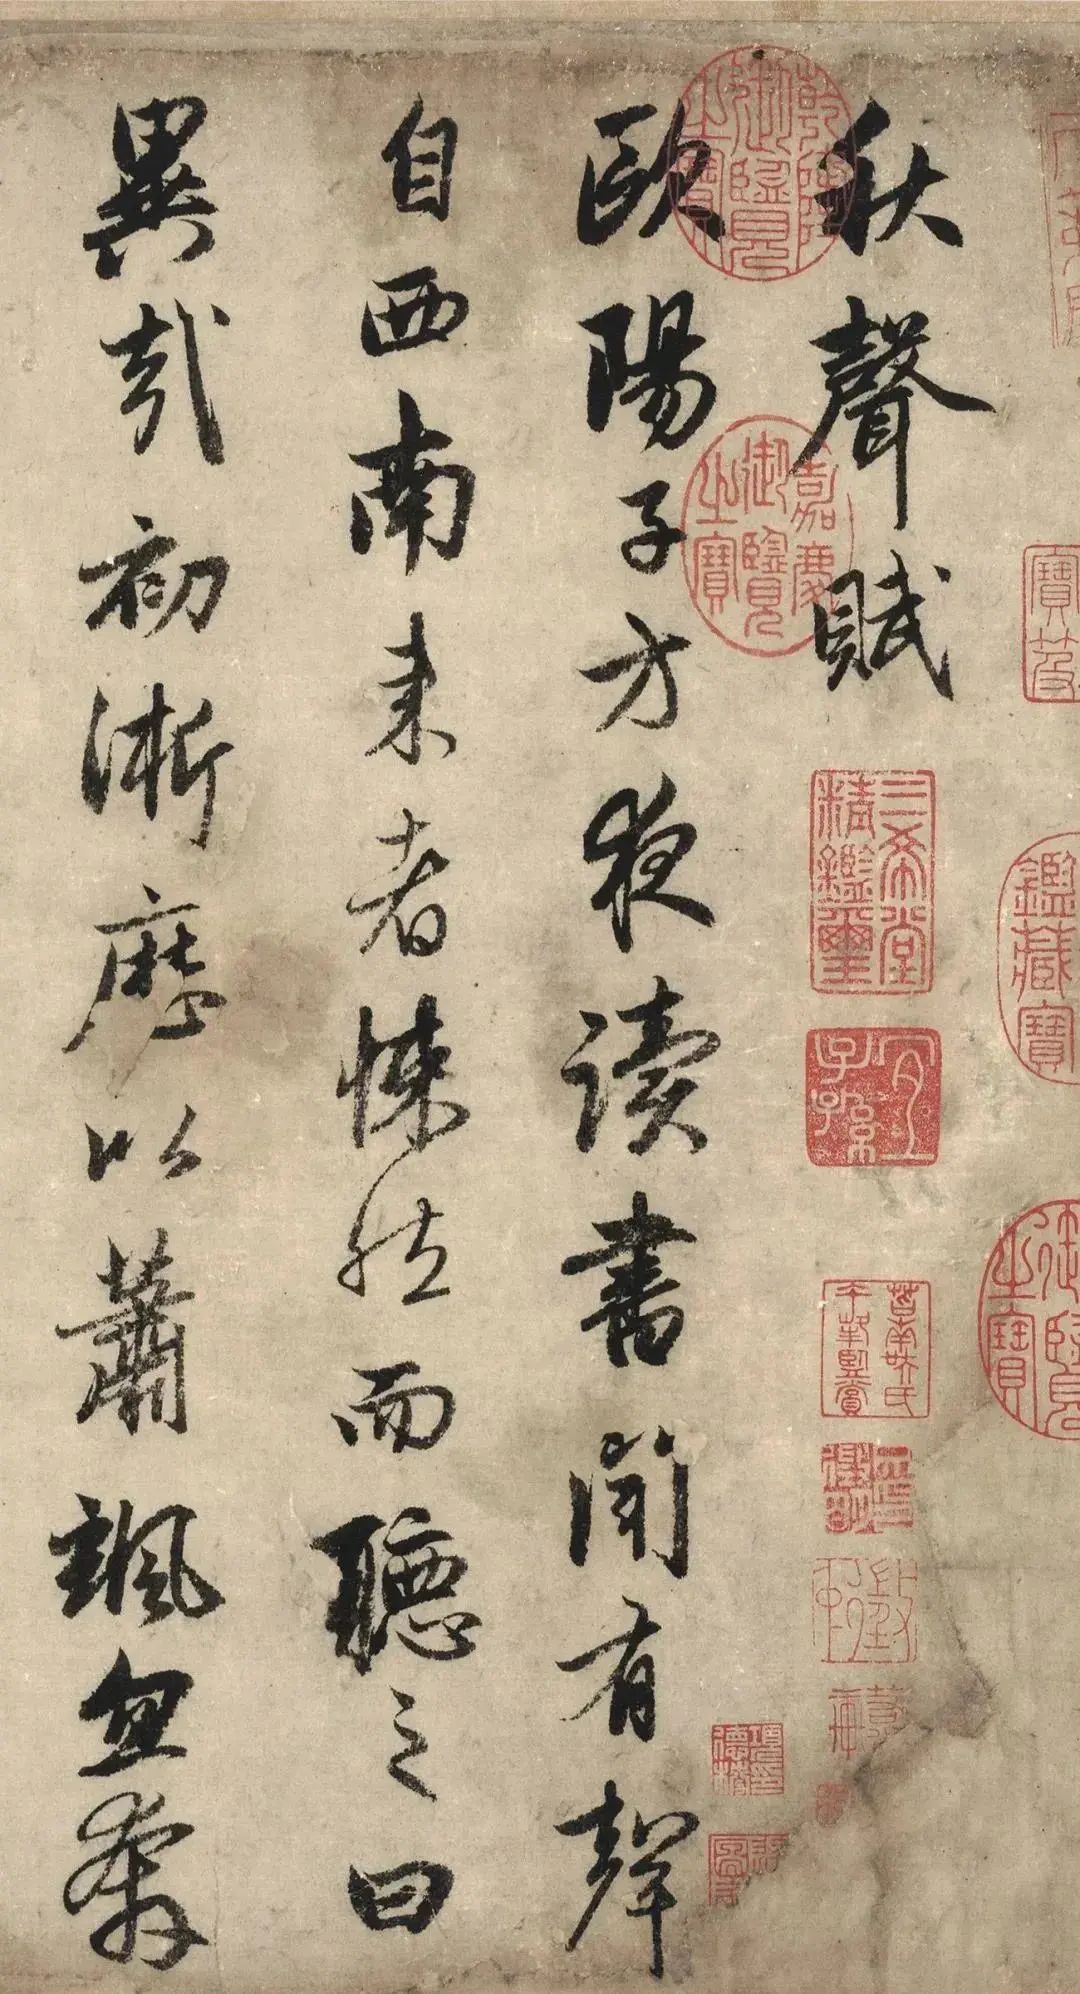 寶笈
鑑藏寶
御覽之寶
秋聲賦
乾隆御覽之寶
嘉慶御覽之寶
三希堂精鑑璽
宜子孫
歐陽子方夜讀書聞有聲
自西南来者悚然而聽之曰
異哉初淅歷以蕭颯忽奔